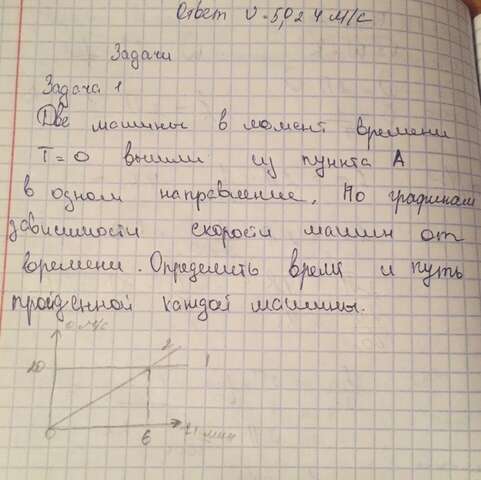 Ответ υ = 5,02 4 м/с
Задачи
Задача 1
Две машины в момент времени
T = 0 вышли из пункта А
в одном направление. По графикам
зависимости скорости машин от
времени. Определить время и путь
пройденной каждой машины.
υ м/с
2
20
1
0
6
t, мин